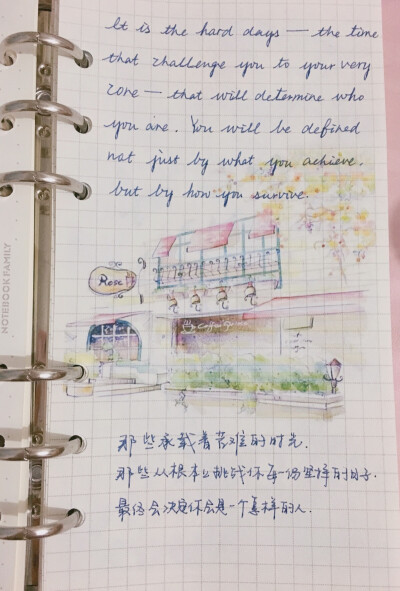 It is the hard days — the time
that challenge you to your very
core — that will determine who
you are. You will be defined
not just by what you achieve.
but by how you survive.
NOTEBOOK FAMILY
Rose
Coffee
那些承载着苦难的时光.
那些从根本上挑战你每一份坚持的日子.
最终会决定你会是一个怎样的人.